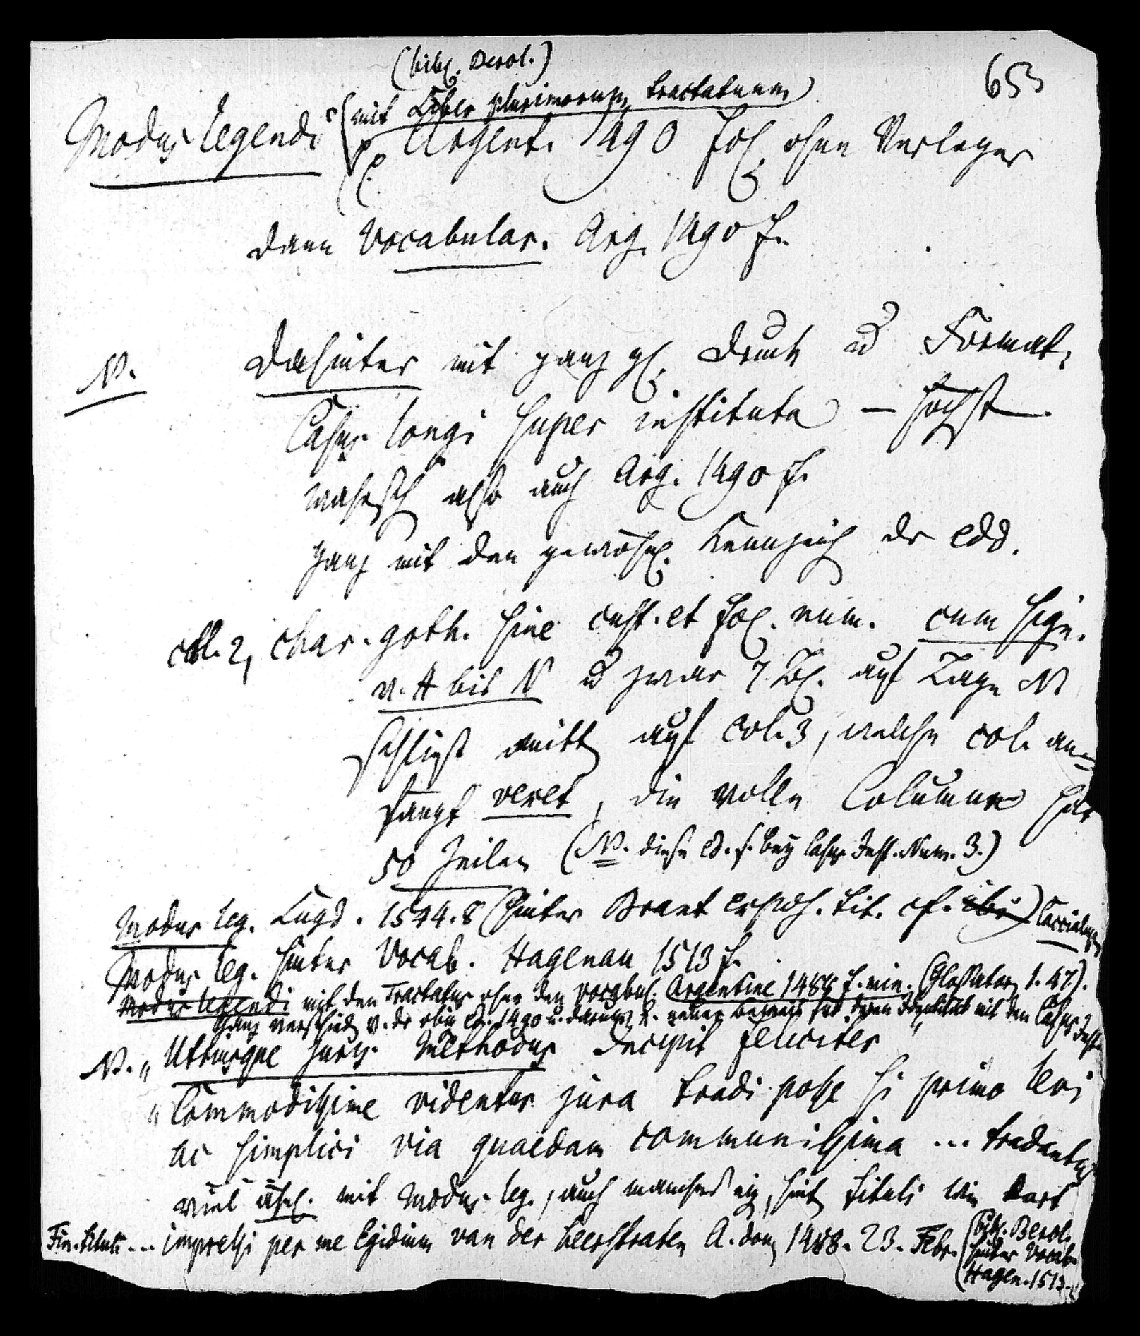 (bibl. Berol.)
653
(mit Liber plurimorum tractatuum)
Modus legendi Argent. 1490 fol. ohne Verleger
dann Vocabular. Arg. 1490 f.
N. Dahinter mit ganz gl. Druck u Format,
Casus longi super instituta – höchst
wahrsch also auch Arg. 1490 f.
ganz mit den gewöhnl. Kennzeich der edd.
col. 2, char. goth. sine cust. et fol. num. cum sign.
v. A bis N u zwar 7 Bl. auf Lage N
schließt mitt auf col. 3, welche col. an-
fängt veret, die volle Columne hat
50 Zeilen (N. diese ed. s. bey Casus Inst. Num. 3.)
Modus leg. Lugd. 1544. 8 (hinter Brant expos. tit. cf. ibi)
Modus leg. hinter Vocab. Hagenau 1513 f.
Modus legendi mit den Tractatus ohne den vocabul. Argentine 1488 f. min. (Glossatoren 1. 47).
ganz verschied v. der obig ed. 1490 u. darum mit den Casus Inst.
N. „Utriusque juris Methodus Incipit feliciter"
„Commodissime videntur jura tradi posse si primo levi
ac simplici via quaedam communissima ... tradantur
viel ähnl. mit Modus leg., auch manches eig, sint tituli wie dort
Fin. tituli ... impressi per me Egidium van der heerstraten A. dom 1488. 23. Febr. (bibl. Berol.
hinter Vocab.
Hagen. 1513